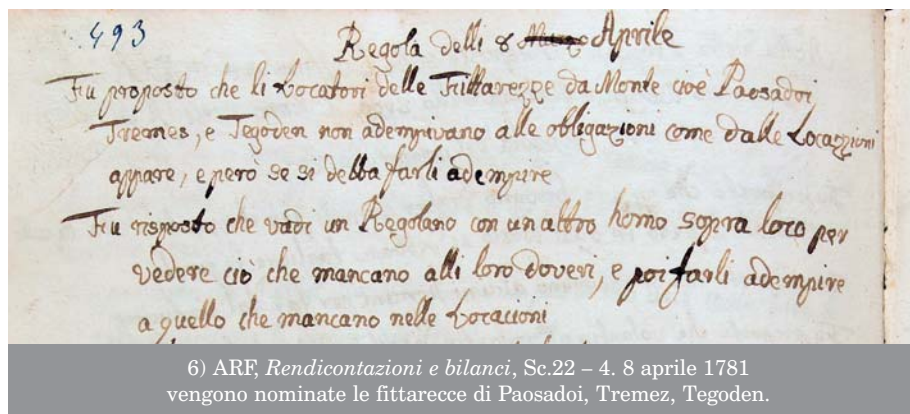 493
Regola delli 8 Marzo Aprile
Fu proposto che li Locatori delle Fittarezze da Monte cioè Paosadoi,
Tremes, e Tegoden non adempivano alle obligazioni come dalle Locazzioni
appare, e però se si debba farli adempire
Fu risposto che vadi un Regolano con un altro homo sopra loco per
vedere ciò che mancano alli loro doveri, e poi farli adempire
a quello che mancano nelle Locacioni
6) ARF, Rendicontazioni e bilanci, Sc.22 – 4. 8 aprile 1781
vengono nominate le fittarecce di Paosadoi, Tremez, Tegoden.